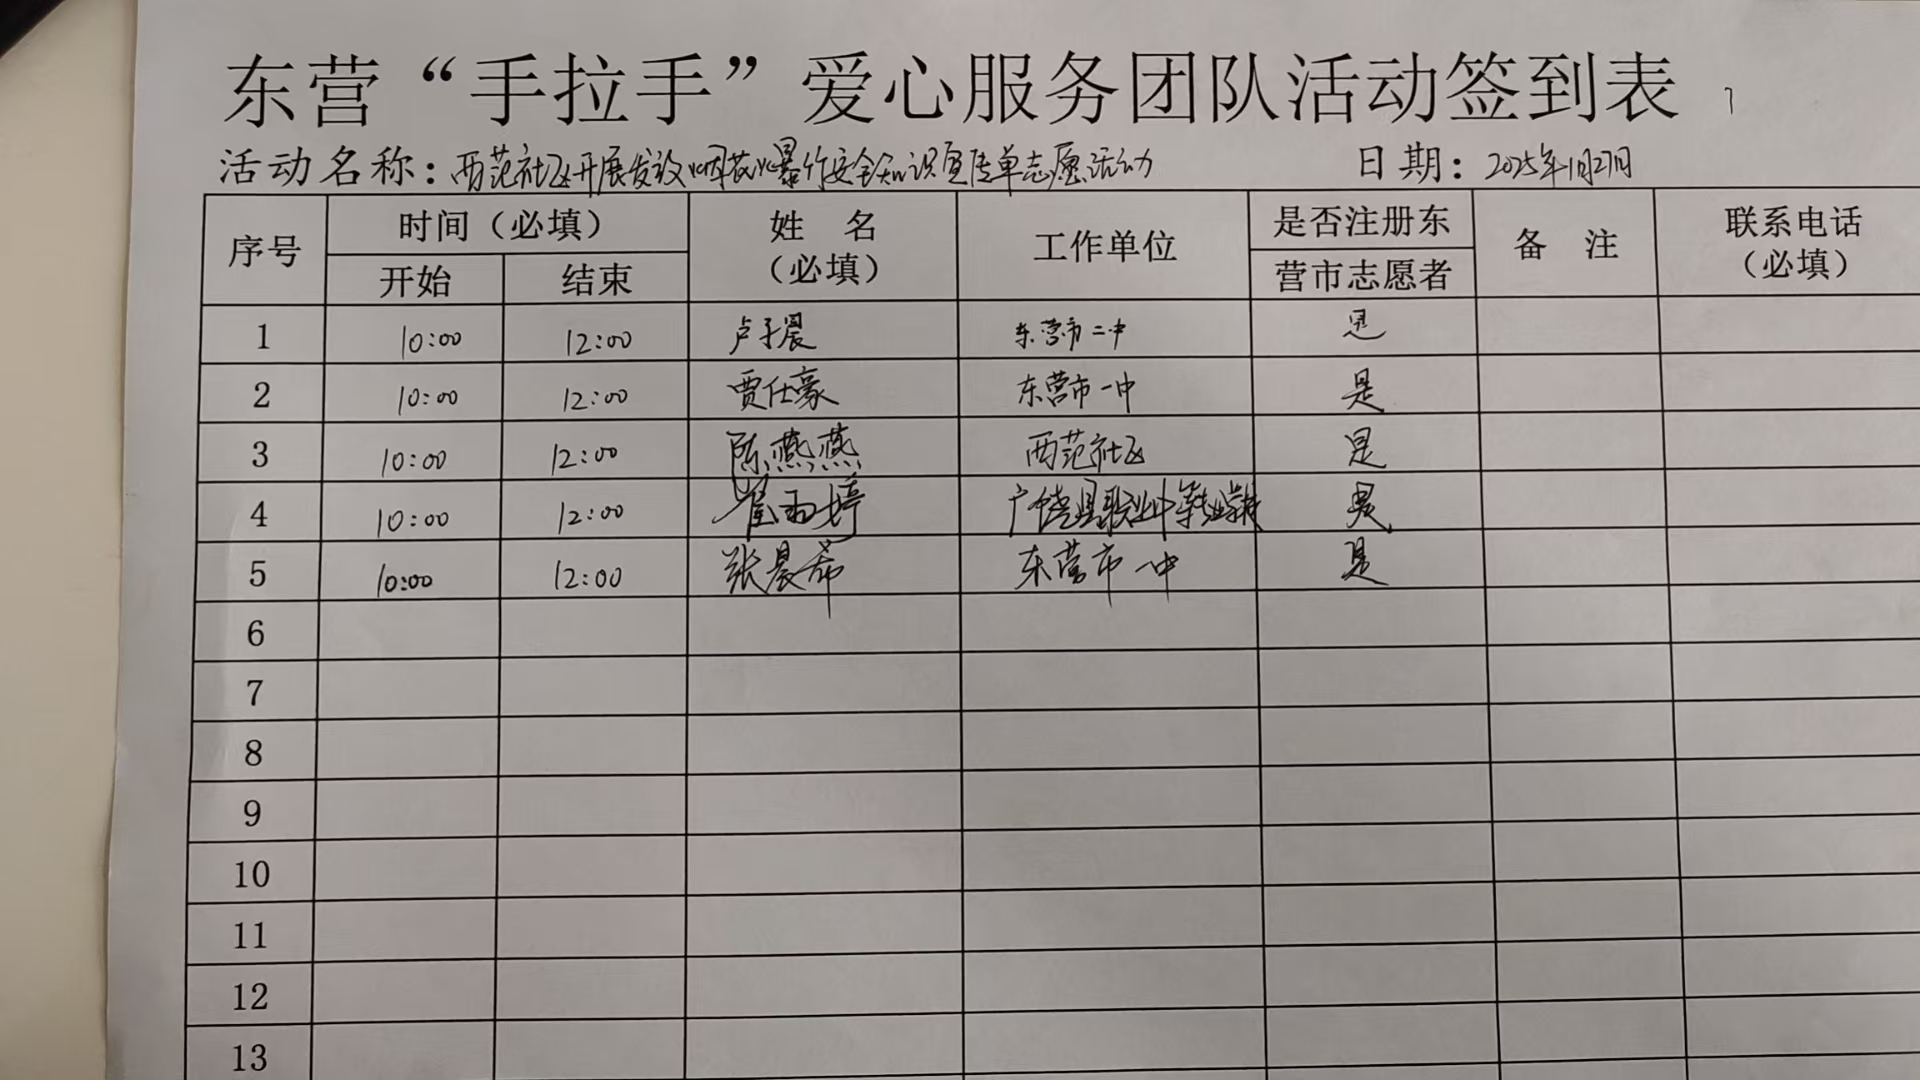 东营“手拉手”爱心服务团队活动签到表
活动名称：西范社区开展发放烟花爆竹安全知识宣传单志愿活动 日期：2025年1月27日
序号 时间（必填） 姓 名（必填） 工作单位 是否注册东营市志愿者 备 注 联系电话（必填）
开始 结束
1 10:00 12:00 卢子晨 东营市二中 是
2 10:00 12:00 贾仕豪 东营市一中 是
3 10:00 12:00 陈燕燕 西范社区 是
4 10:00 12:00 崔雨婷 广饶县职业中等专业学校 是
5 10:00 12:00 张晨希 东营市一中 是
6
7
8
9
10
11
12
13